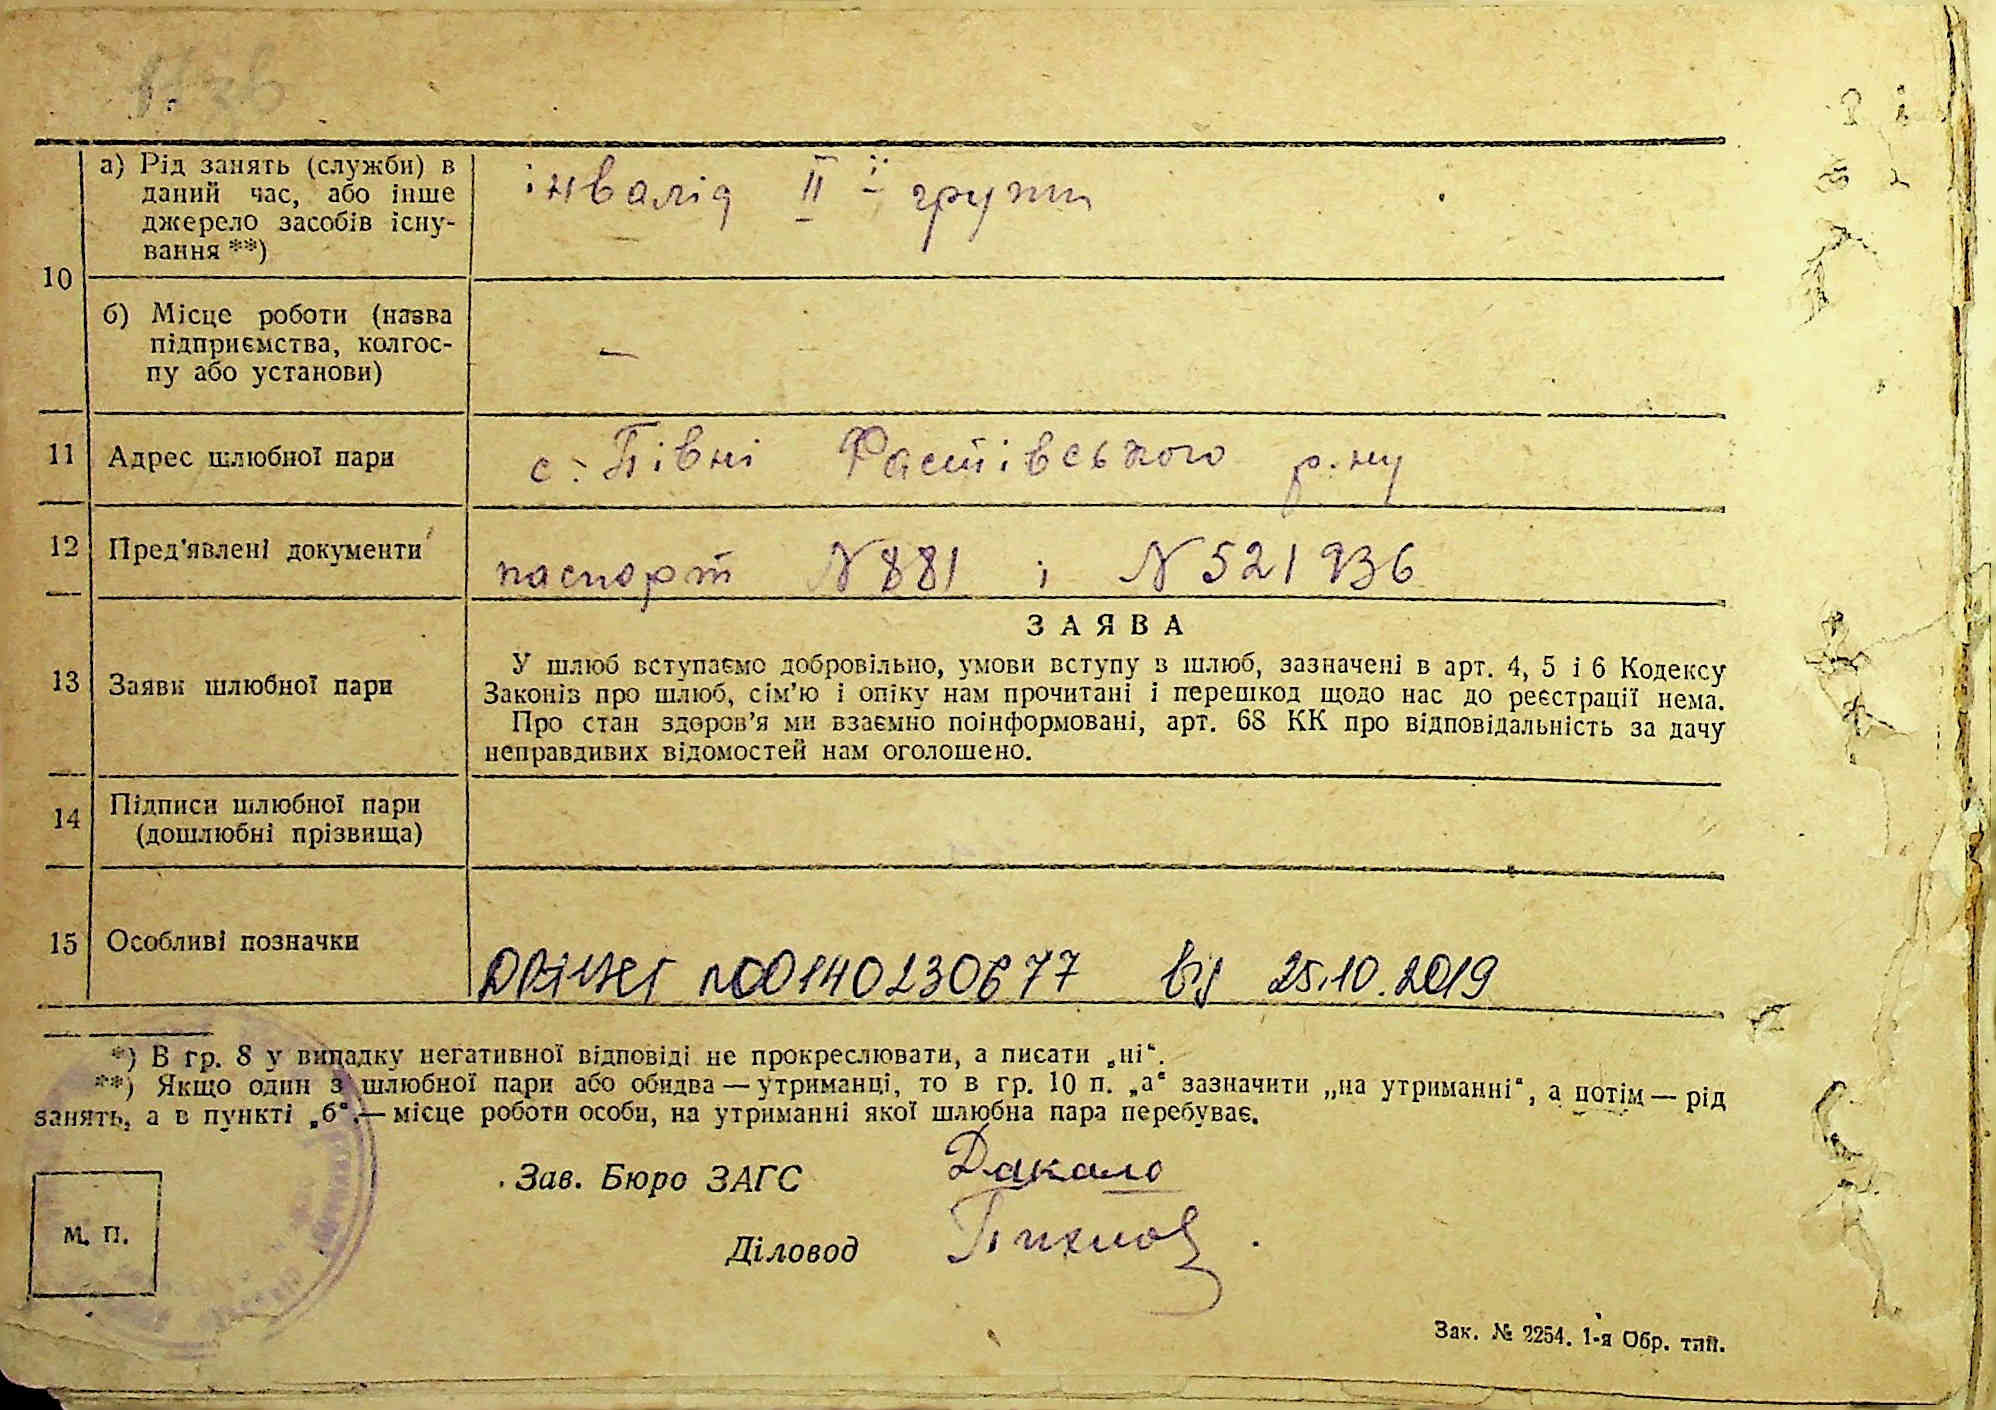 10
а) Рід занять (служби) в
даний час, або інше
джерело засобів існу-
вання **)
інвалід II-ї групи
б) Місце роботи (назва
підприємства, колгос-
пу або установи)
—
11 Адрес шлюбної пари с. Півні Фастівського р-ну
12 Пред'явлені документи паспорт N 881 і N 521936
13 Заяви шлюбної пари
ЗАЯВА
У шлюб вступаємо добровільно, умови вступу в шлюб, зазначені в арт. 4, 5 і 6 Кодексу
Законів про шлюб, сім'ю і опіку нам прочитані і перешкод щодо нас до реєстрації нема.
Про стан здоров'я ми взаємно поінформовані, арт. 68 КК про відповідальність за дачу
неправдивих відомостей нам оголошено.
14 Підписи шлюбної пари
(дошлюбні прізвища)
15 Особливі позначки 00140230677 від 25.10.2019
*) В гр. 8 у випадку негативної відповіді не прокреслювати, а писати „ні“.
**) Якщо один з шлюбної пари або обидва — утриманці, то в гр. 10 п. „а“ зазначити „на утриманні“, а потім — рід
занять, а в пункті „б“ — місце роботи особи, на утриманні якої шлюбна пара перебуває.
Зав. Бюро ЗАГС Дакало
Діловод
М. П.
Зак. № 2254. 1-я Обр. тип.